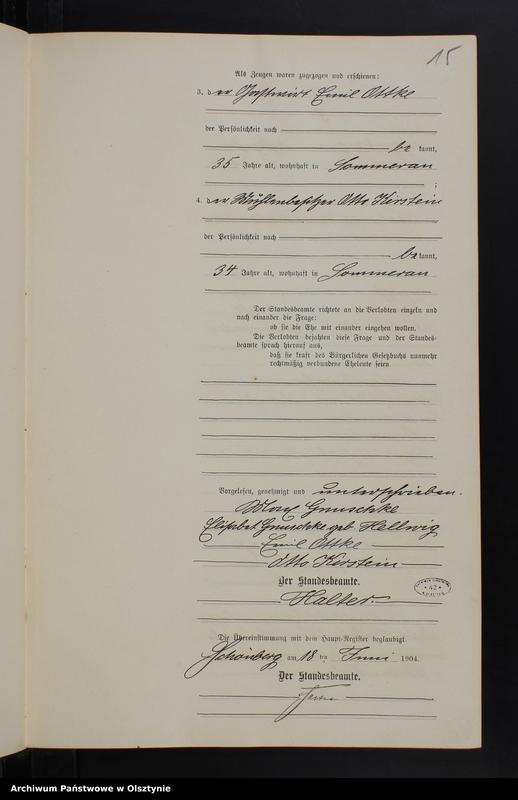 15
Als Zeugen waren zugezogen und erschienen:
3. der Gastwirt Emil Ottke
der Persönlichkeit nach
bekannt,
35 Jahre alt, wohnhaft in Sommerau
;
4. der Mühlenbesitzer Otto Kirstein
der Persönlichkeit nach
bekannt,
34 Jahre alt, wohnhaft in Sommerau
Der Standesbeamte richtete an die Verlobten einzeln und
nach einander die Frage:
ob sie die Ehe mit einander eingehen wollen.
Die Verlobten bejahten diese Frage und der Standes-
beamte sprach hierauf aus,
daß sie kraft des Bürgerlichen Gesetzbuchs nunmehr
rechtmäßig verbundene Eheleute seien.
Vorgelesen, genehmigt und unterschrieben.
Max Gruschke
Elisabet Gruschke geb. Hellwig
Emil Ottke
Otto Kirstein
Der Standesbeamte.
Halter.
Die Übereinstimmung mit dem Haupt-Register beglaubigt.
Schönberg am 18 ten Juni 1904.
Der Standesbeamte.
Archiwum Państwowe w Olsztynie